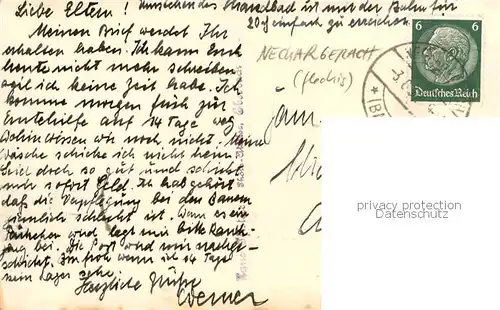 Liebe Eltern! umstehendes Strandbad ist mit der Bahn für
20 ₰ einfach zu erreichen.
Meinen Brief werdet Ihr
erhalten haben. Ich kann Euch
heute nicht mehr schreiben
weil ich keine Zeit habe. Ich
komme morgen früh zur
Erntehilfe auf 14 Tage weg
Wohin wissen wir noch nicht. Meine
Wäsche schicke ich nicht heim
Seid doch so gut und schickt
mir sofort Geld. Ich hab gehört
daß die Verpflegung bei den Bauern
ziemlich schlecht ist. Wenn es ein
Päckchen wird legt mir bitte
bei. Die Post wird mir nachge-
schickt. Bin froh wenn ich 14 Tage
kein Lager sehe
Herzliche Grüße
Werner
NECKARGERACH
6 6
Deutsches Reich
privacy protection
watermark